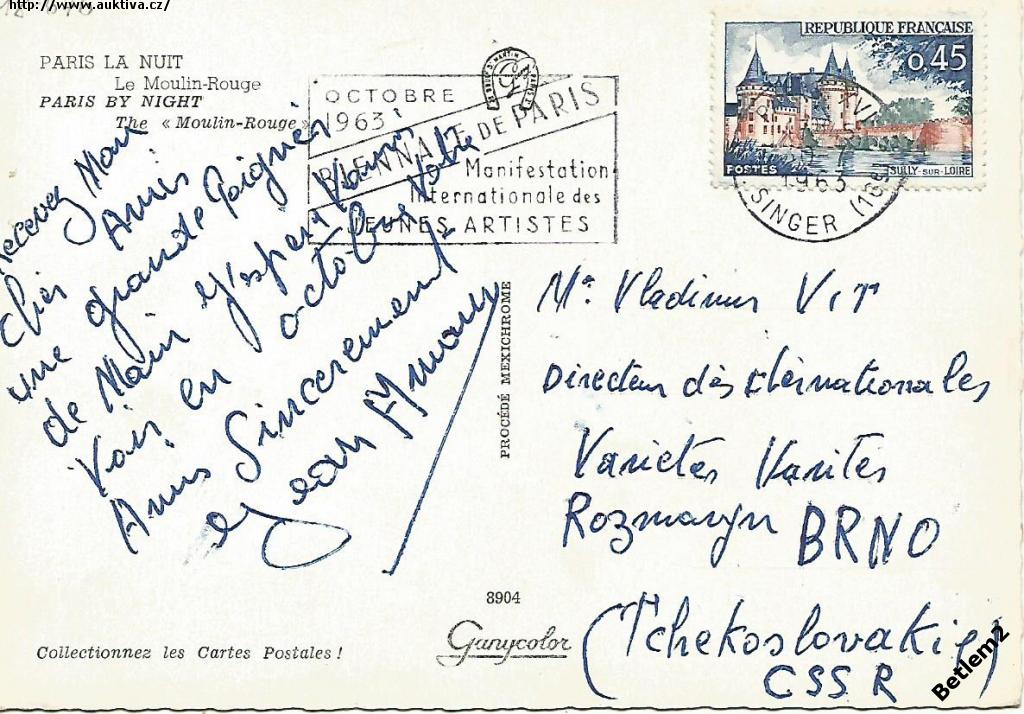 http://www.auktiva.cz/
PARIS LA NUIT
Le Moulin-Rouge
PARIS BY NIGHT
The « Moulin-Rouge »
OCTOBRE
1963
BIENNALE DE PARIS
Manifestation
Internationale des
JEUNES ARTISTES
REPUBLIQUE FRANÇAISE
0,45
POSTES
SULLY-SUR-LOIRE
1963
SINGER (16e
Recevez Mon
cher Amis
une grande Poignée
de Main j'esper Vous
Voir en octobre Votre
Amis Sincerement
Jean
PROCÉDÉ MEXICHROME
Mr Vladimir Vit
Directeur dès
Varietes
Rozmaryn BRNO
(Tchekoslovakie)
CSSR
3904
Ganycolor
Collectionnez les Cartes Postales !
Betlem2